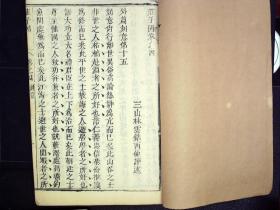 三山林雲銘西仲評述
外篇刻意第十五
刻意尚行離世異俗高論怨誹為亢而已矣此山谷之士
非世之人枯槁赴淵者之所好也語仁義忠信恭儉推讓
為修而已矣此平世之士教誨之人遊居學者之所好也
語大功立大名禮君臣正上下為治而已矣此朝廷之士
尊主強國之人致功并兼者之所好也就藪澤處閒曠釣
魚閒處無為而已矣此江海之士避世之人閒暇者之所